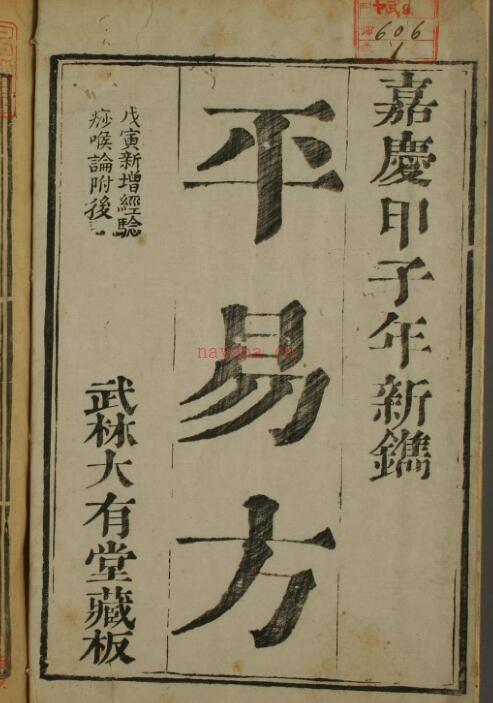 嘉慶甲子年新鐫
平易方
戊寅新增經驗
痧喉論附後
武林大有堂藏板
606
1
nayona.cn